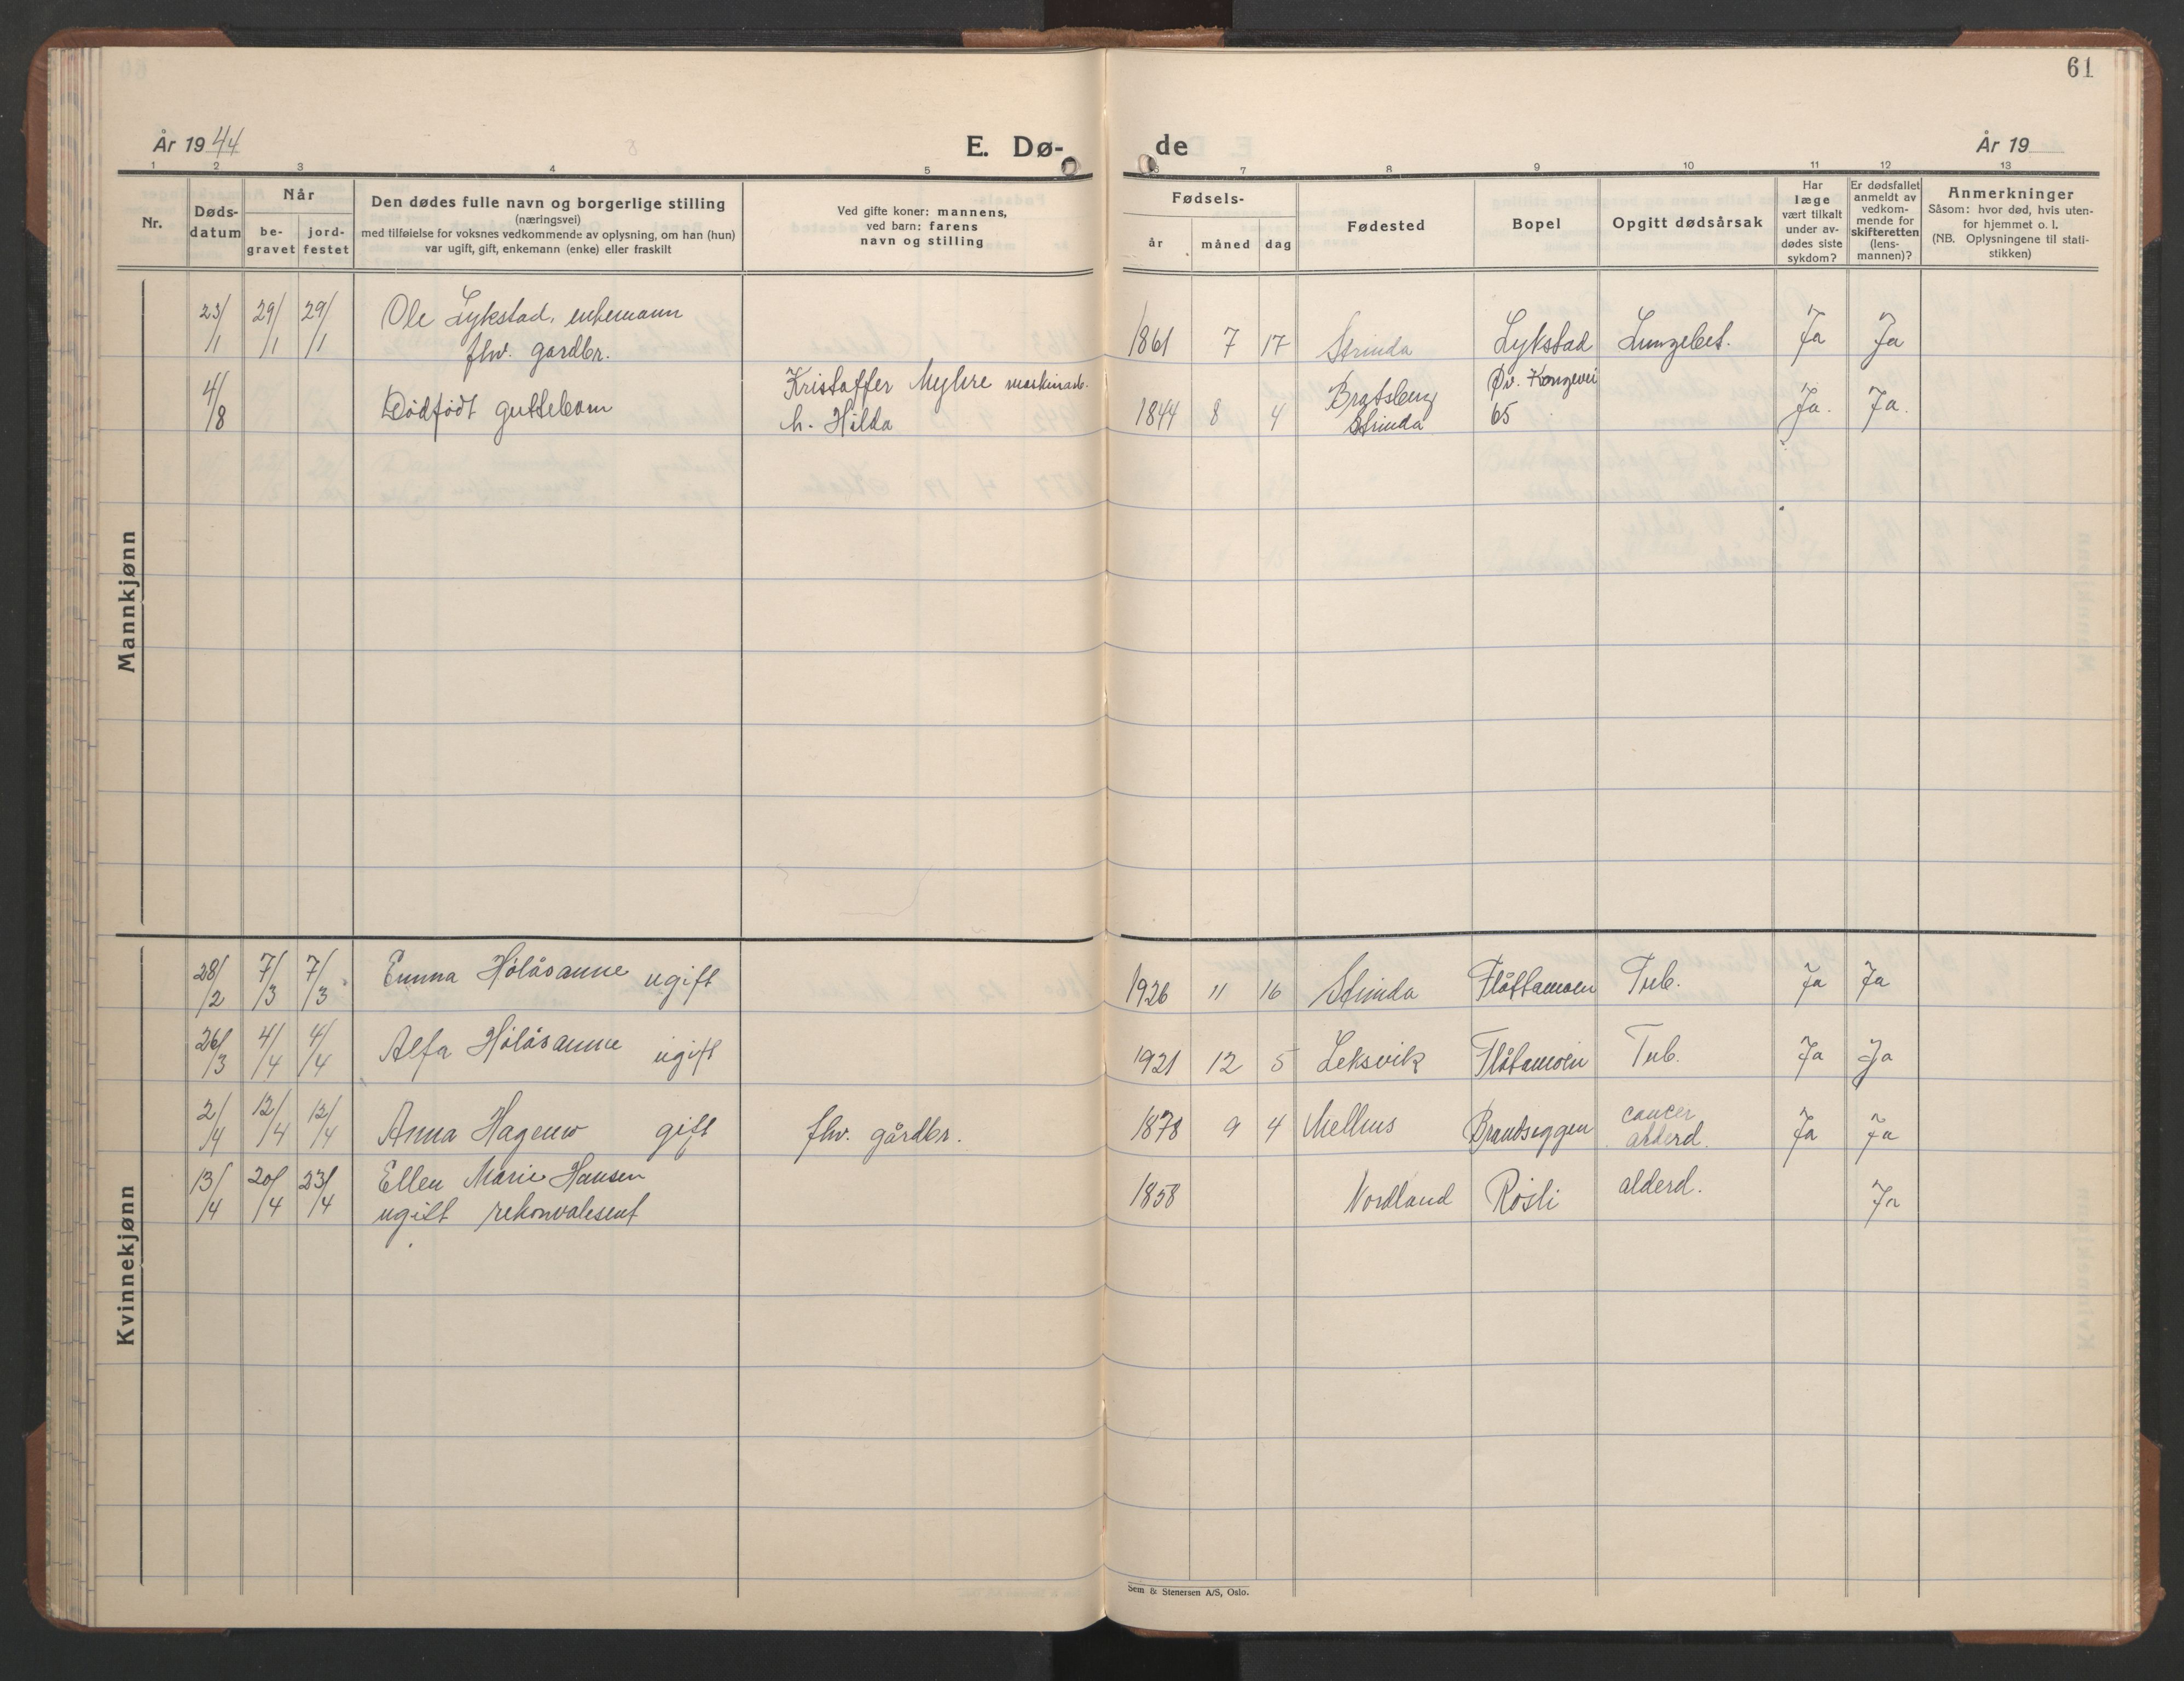 61
År 1944
E. Dø-
de
År 19
1 2 3 4 5 6 7 8 9 10 11 12 13
Nr.
Døds-
datum
Når
be-
gravet
jord-
festet
Den dødes fulle navn og borgerlige stilling
(næringsvei)
med tilføielse for voksnes vedkommende av oplysning, om han (hun)
var ugift, gift, enkemann (enke) eller fraskilt
Ved gifte koner: mannens,
ved barn: farens
navn og stilling
Fødsels-
år måned dag
Fødested
Bopel
Opgitt dødsårsak
Har
læge
vært tilkalt
under av-
dødes siste
sykdom?
Er dødsfallet
anmeldt av
vedkom-
mende for
skifteretten
(lens-
mannen)?
Anmerkninger
Såsom: hvor død, hvis uten-
for hjemmet o. l.
(NB. Oplysningene til stati-
stikken)
Mannkjønn
23/1 29/1 29/1 Ole Lykstad, enkemann
fhv. gardbr. 1861 7 17 Strinda Lykstad Lungebet. Ja Ja
4/8 Dødfødt guttebarn Kristoffer Myhre maskinarb.
h. Hilda 1844 8 4 Bratsberg
Strinda Øv. Kongevei
65 Ja. Ja.
Kvinnekjønn
28/2 7/3 7/3 Emma Hølåsanne ugift 1926 11 16 Strinda Flåttamoen Tub. Ja Ja
26/3 4/4 4/4 Alfa Hølåsanne ugift 1921 12 5 Leksvik Flåtamoen Tub. Ja Ja
2/4 12/4 12/4 Anna Hagemo gift fhv. gårdbr. 1878 9 4 Melhus Brandseggen cancer
alderd. Ja Ja
13/4 20/4 23/4 Ellen Marie Hansen
ugift rekonvalesent 1858 Nordland Røsli alderd. Ja
Sem & Stenersen A/S, Oslo.